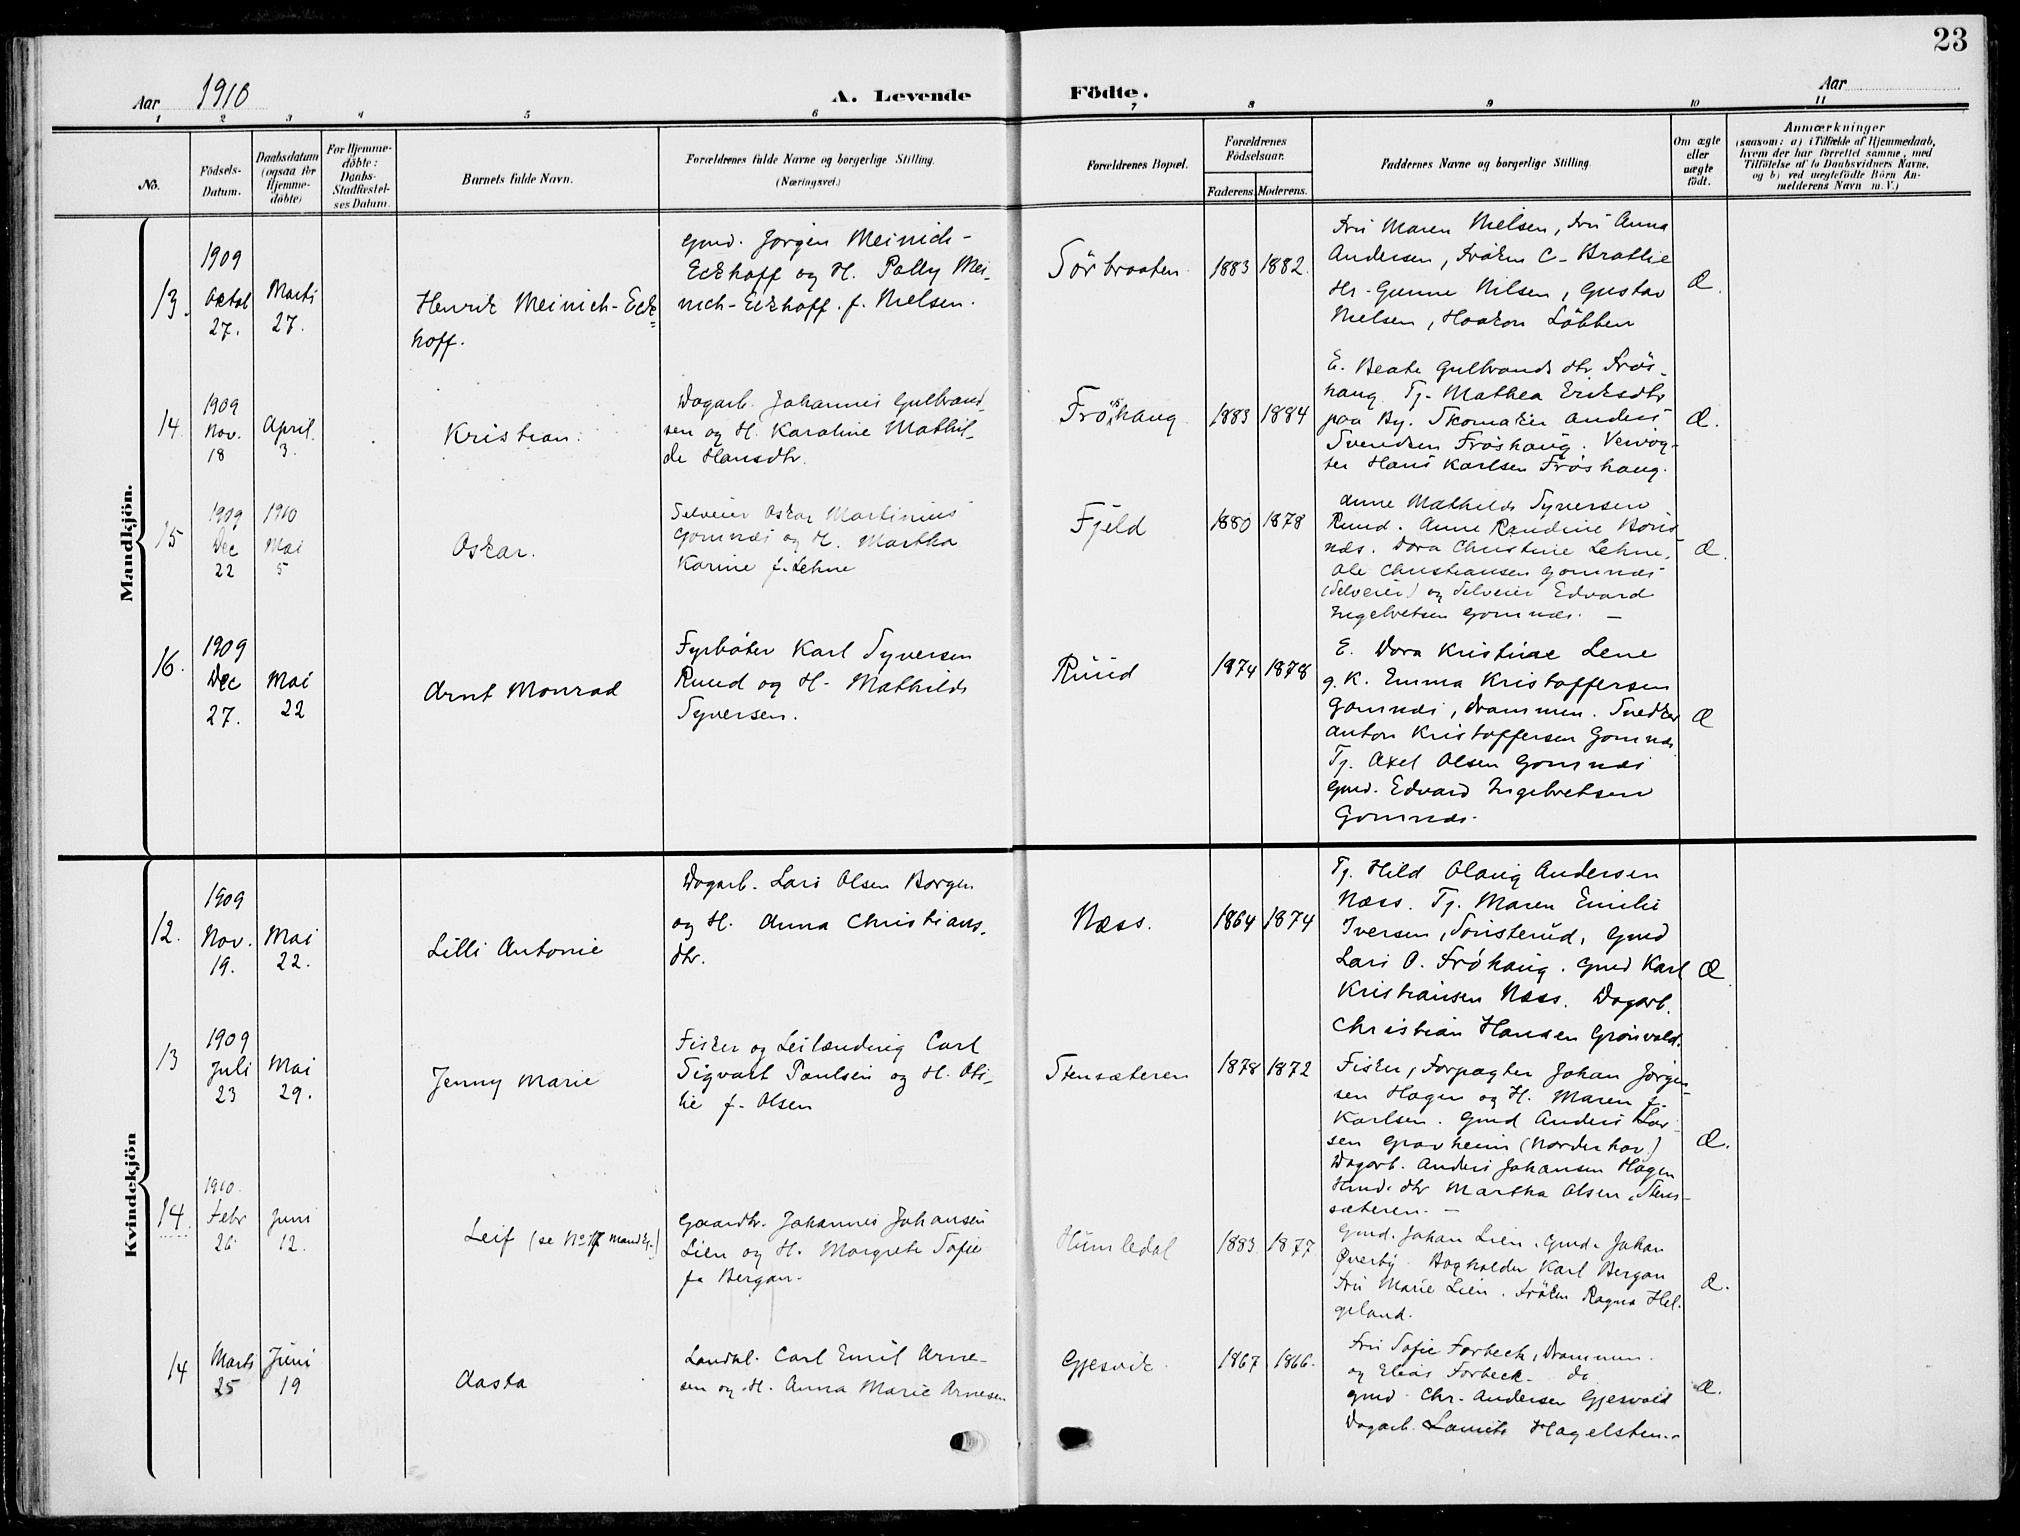 23
Aar 1910
A. Levende
Födte.
Aar
1 2 3 4 5 6 7 8 9 10 11
No.
Födsels-
Datum.
Daabsdatum
(ogsaa for
Hjemme-
döbte)
For Hjemme-
döbte:
Daabs-
Stadfæstel-
ses Datum.
Barnets fulde Navn.
Forældrenes fulde Navne og borgerlige Stilling.
(Næringsvei.)
Forældrenes Bopæl.
Forældrenes
Födselsaar.
Faderens.
Moderens.
Faddernes Navne og borgerlige Stilling.
Om ægte
eller
uægte
født.
Anmærkninger
(saasom: a) i Tilfælde af Hjemmedaab,
hvem der har forrettet samme, med
Tilföielse af to Daabsvidners Navne,
og b) ved uegtefödte Börn An-
melderens Navn m. V.)
Mandkjön.
13.
1909
Octob
27.
Marts
27.
Henrik Meinich-Eck=
hoff.
Gmd. Jørgen Meinich-
Eckhoff og H. Pally Mei-
nich-Eckhoff. f. Nielsen.
Sørbraaten.
1883
1882.
Fru Maren Nielsen, Fru Anna
Andersen, Frøken C. Brathie
Hr. Gunne Nilsen, Gustav
Nielsen, Haakon Løkken
Æ.
14.
1909
Nov.
18
April
3.
Kristian.
Dagarb. Johannes Gulbrand-
sen og H. Karoline Mathil-
de Hansdtr.
Frøshaug
1883
1884
E. Beate Gulbrands dtr. Frøs-
haug. Tj. Mathea Eriksdtr
paa By. Skomaker Anders
Svendsen Frøshaug.
ter Hans Karlsen Frøshaug.
Æ.
15
1909
Dec
22
1910
Mai
5
Oskar.
Selveier Oskar Martinius
Gomnæs og H. Martha
Karine f. Lehne
Fjeld
1880
1878
Anne Mathilds Syversen
Ruud. Anne Randine
næs. Dora Christine Lehne,
Ole Christiansen Gomnæs
(Selveier) og Selveier Edvard
Ingebretsen Gomnæs. —
Æ.
16.
1909
Dec
27.
Mai
22
Arnt Monrad
Fyrbøter Karl Syversen
Ruud og H. Mathilds
Syversen.
Ruud
1874
1878
E. Dora Kristine Lene
g. K. Emma Kristoffersen
Gomnæs, Drammen. Snedker
Anton Kristoffersen Gomnæs
Tj. Axel Olsen Gomnæs
Gmd. Edvard Ingebretsen
Gomnæs.
Æ
Kvindekjön
12.
1909
Nov.
19.
Mai
22.
Lilli Antonie
Dagarb. Lars Olsen Borgen
og H. Anna Christians-
dtr.
Næss.
1864
1874
Tj. Hild Olaug Andersen
Næss. Tj. Maren Emilie
Iversen, Sønsterud, Gmd
Lars O. Frøhaug. Gmd Karl
Kristiansen Næss. Dagarb.
Christian Hansen Grønvold.
Æ
13
1909
Juli
23
Mai
29.
Jenny Marie
Fisker og Leilænding Carl
Sigvart Paulsen og H. Oti-
lie f. Olsen
Stensæteren
1878
1872
Fisker, Forpagter Johan Jørgen-
sen Hagen og H. Maren f.
Karlsen. Gmd Anders Lar-
sen Gravheim (Norderhov)
Dagarb. Anders Johansen Hagen
Husd. dtr Martha Olsen, Stens-
sæteren. —
Æ.
14.
1910.
Febr
26
Juni
12.
Leif (se No 17 Mandkj.)
Gaardbr. Johannes Johansen
Lien og H. Margrethe Sofie
f. Bergan.
Humledal
1883
1877
Gmd. Johan Lien. Gmd. Johan
Øverby. Bogholder Karl Bergan
Fru Marie Lien. Frøken Ragna Hel-
geland.
Æ.
14
Marts
25
Juni
19
Aasta
Landhl. Carl Emil Arne-
sen og H. Anna Marie Arnesen
Gjesvik.
1867
1866.
Fru Sofie Forbeck, Drammen.
og Elias Forbeck do
Gmd. Chr. Andersen Gjesvold
Dagarb. Laurits Hagelsten.
Æ.